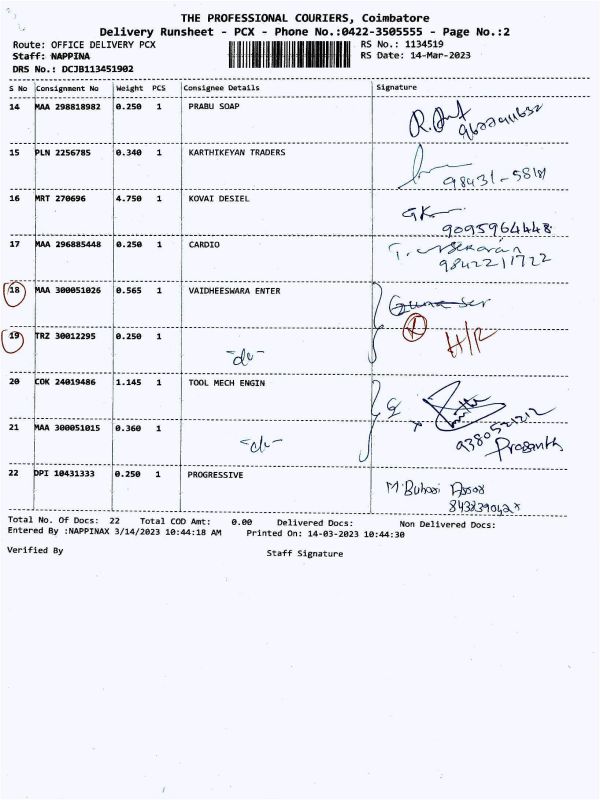 THE PROFESSIONAL COURIERS, Coimbatore
Delivery Runsheet - PCX - Phone No.:0422-3505555 - Page No.:2
Route: OFFICE DELIVERY PCX RS No.: 1134519
Staff: NAPPINA RS Date: 14-Mar-2023
DRS No.: DCJB113451902
S No Consignment No Weight PCS Consignee Details Signature
14 MAA 298818982 0.250 1 PRABU SOAP
15 PLN 2256785 0.340 1 KARTHIKEYAN TRADERS
98431-58181
16 MRT 270696 4.750 1 KOVAI DESIEL
9095964448
17 MAA 296885448 0.250 1 CARDIO
9842211722
18 MAA 300051026 0.565 1 VAIDHEESWARA ENTER
19 TRZ 30012295 0.250 1 -do- H/R
20 COK 24019486 1.145 1 TOOL MECH ENGIN
21 MAA 300051015 0.360 1 -do-
Prasanth
22 DPI 10431333 0.250 1 PROGRESSIVE
M. Buhari
Total No. Of Docs: 22 Total COD Amt: 0.00 Delivered Docs: Non Delivered Docs:
Entered By :NAPPINAX 3/14/2023 10:44:18 AM Printed On: 14-03-2023 10:44:30
Verified By Staff Signature